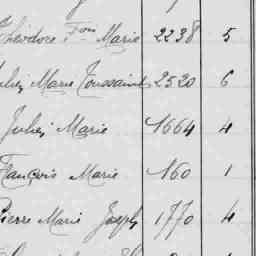 Théodore Fois Marie 2238 5
Julien Marie Toussaint 2520 6
Julien Marie 1664 4
François Marie 160 1
Pierre Marie Joseph 1770 4